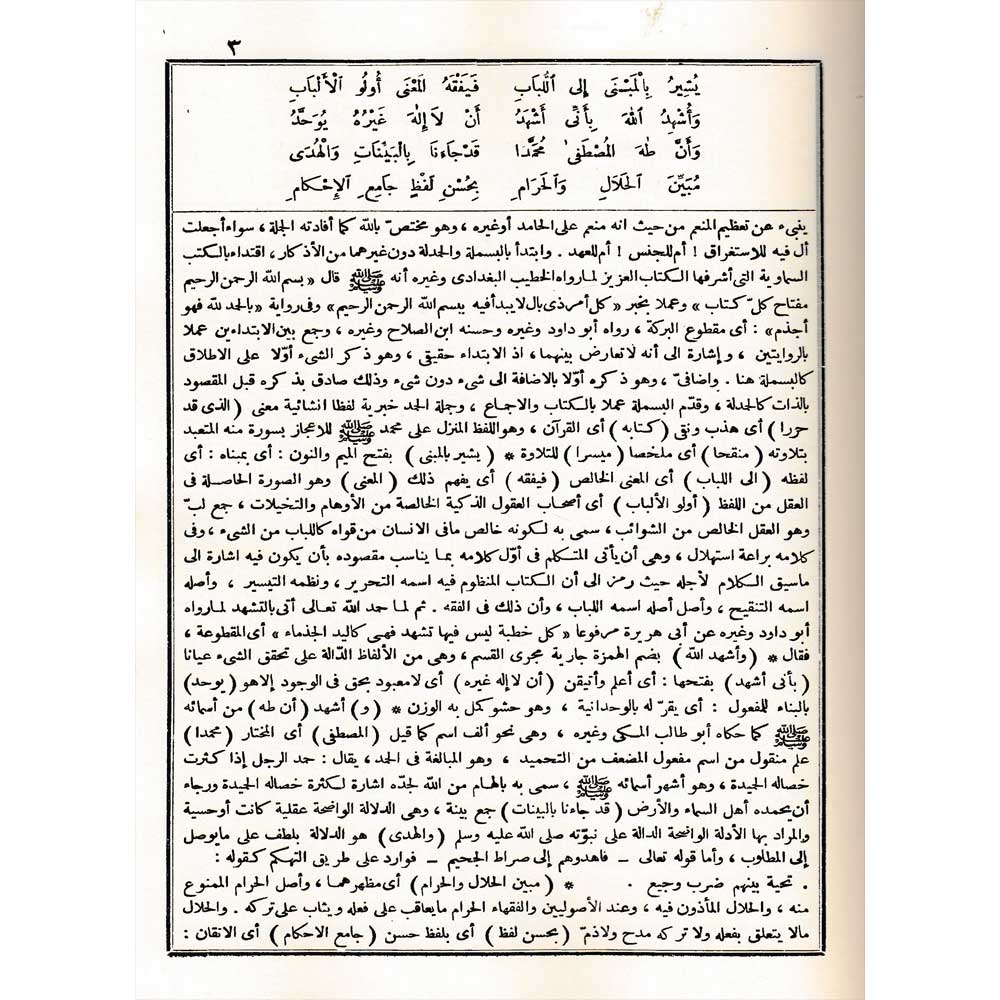 ٣
يُشِيرُ بِالْمَبْنَى إِلَى اللُّبَابِ فَيَفْقَهُ الْمَعْنَى أُولُو الْأَلْبَابِ
وَأُشْهِدُ اللهَ بِأَنِّى أَشْهَدُ أَنْ لَا إِلٰهَ غَيْرُهُ يُوَحَّدُ
وَأَنَّ طٰهَ الْمُصْطَفَى مُحَمَّدَا قَدْ جَاءَنَا بِالْبَيِّنَاتِ وَالْهُدَى
مُبَيِّنَ الْحَلَالِ وَالْحَرَامِ بِحُسْنِ لَفْظٍ جَامِعِ الْإِحْكَامِ
ينبىء عن تعظيم المنعم من حيث انه منعم على الحامد أو غيره ، وهو مختصّ بالله كما أفادته الجملة ، سواء أجعلت
أل فيه للاستغراق ! أم للجنس ! أم للعهد . وابتدأ بالبسملة والحمدلة دون غيرهما من الأذكار ، اقتداء بالكتب
السماوية التى أشرفها الكتاب العزيز لما رواه الخطيب البغدادى وغيره أنه ﷺ قال «بسم الله الرحمن الرحيم
مفتاح كلّ كتاب» وعملا بخبر «كل أمر ذى بال لا يبدأ فيه ببسم الله الرحمن الرحيم» وفى رواية «بالحمد لله فهو
أجذم» : أى مقطوع البركة ، رواه أبو داود وغيره وحسنه ابن الصلاح وغيره ، وجمع بين الابتداءين عملا
بالروايتين ، وإشارة الى أنه لا تعارض بينهما ، اذ الابتداء حقيقى ، وهو ذكر الشىء أوّلا على الاطلاق
كالبسملة هنا . واضافىّ ، وهو ذكره أوّلا بالاضافة الى شىء دون شىء وذلك صادق بذكره قبل المقصود
بالذات كالحمدلة ، وقدّم البسملة عملا بالكتاب والاجماع ، وجملة الحمد خبرية لفظا انشائية معنى (الذى قد
حررا) أى هذب ونقى (كتابه) أى القرآن ، وهو اللفظ المنزل على محمد ﷺ للاعجاز بسورة منه المتعبد
بتلاوته (منقحا) أى ملخصا (ميسرا) للتلاوة * (يشير بالمبنى) بفتح الميم والنون : أى بمبناه : أى
لفظه (الى اللباب) أى المعنى الخالص (فيفقه) أى يفهم ذلك (المعنى) وهو الصورة الحاصلة فى
العقل من اللفظ (أولو الألباب) أى أصحاب العقول الذكية الخالصة من الأوهام والتخيلات ، جمع لبّ
وهو العقل الخالص من الشوائب ، سمى به لكونه خالص مافى الانسان من قواه كاللباب من الشىء ، وفى
كلامه براعة استهلال ، وهى أن يأتى المتكلم فى أوّل كلامه بما يناسب مقصوده بأن يكون فيه اشارة الى
ماسيق الكلام لأجله حيث رمز الى أن الكتاب المنظوم فيه اسمه التحرير ، ونظمه التيسير ، وأصله
اسمه التنقيح ، وأصل أصله اسمه اللباب ، وأن ذلك فى الفقه . ثم لما حمد الله تعالى أتى بالتشهد لما رواه
أبو داود وغيره عن أبى هريرة مرفوعا «كل خطبة ليس فيها تشهد فهى كاليد الجذماء» أى المقطوعة ،
فقال * (وأشهد الله) بضم الهمزة جارية مجرى القسم ، وهى من الألفاظ الدّالة على تحقق الشىء عيانا
(بأنى أشهد) بفتحها : أى أعلم وأتيقن (أن لا إله غيره) أى لا معبود بحق فى الوجود إلا هو (يوحد)
بالبناء للمفعول : أى يقرّ له بالوحدانية ، وهو حشو كمل به الوزن * (و) أشهد (أن طه) من أسمائه
ﷺ كما حكاه أبو طالب المكى وغيره ، وهى نحو ألف اسم كما قيل (المصطفى) أى المختار (محمدا)
علم منقول من اسم مفعول المضعف من التحميد ، وهو المبالغة فى الحمد ، يقال : حمد الرجل إذا كثرت
خصاله الحميدة ، وهو أشهر أسمائه ﷺ ، سمى به بالهام من الله لجدّه اشارة لكثرة خصاله الحميدة ورجاء
أن يحمده أهل السماء والأرض (قد جاءنا بالبينات) جمع بينة ، وهى الدلالة الواضحة عقلية كانت أوحسية
والمراد بها الأدلة الواضحة الدالة على نبوّته صلى الله عليه وسلم (والهدى) هو الدلالة بلطف على مايوصل
إلى المطلوب ، وأما قوله تعالى – فاهدوهم إلى صراط الجحيم – فوارد على طريق التهكم كقوله :
. تحية بينهم ضرب وجيع . * (مبين الحلال والحرام) أى مظهرهما ، وأصل الحرام الممنوع
منه ، والحلال المأذون فيه ، وعند الأصوليين والفقهاء الحرام مايعاقب على فعله ويثاب على تركه . والحلال
مالا يتعلق بفعله ولا تركه مدح ولاذمّ (بحسن لفظ) أى بلفظ حسن (جامع الاحكام) أى الاتقان :